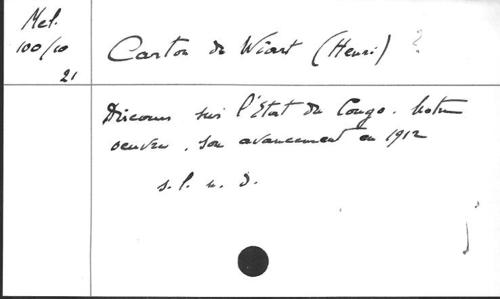 Mel.
100/10
21
Carton de Wiart (Henri) ?
Discours sur l'Etat du Congo. Notre
oeuvre, son avancement en 1912
s.l.n.d.